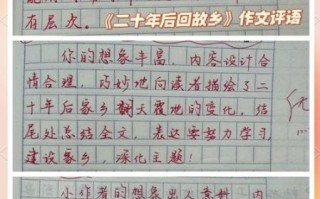 有层次。
《二十年后回故乡》作文评语
你的想象丰富，内容设计合
情合理，巧妙地向读者描绘了二
十年后家乡翻天覆地的变化，结
尾处总结全文，表达要努力学习，
建设家乡，深化主题！
小作者的想象出人意料，内